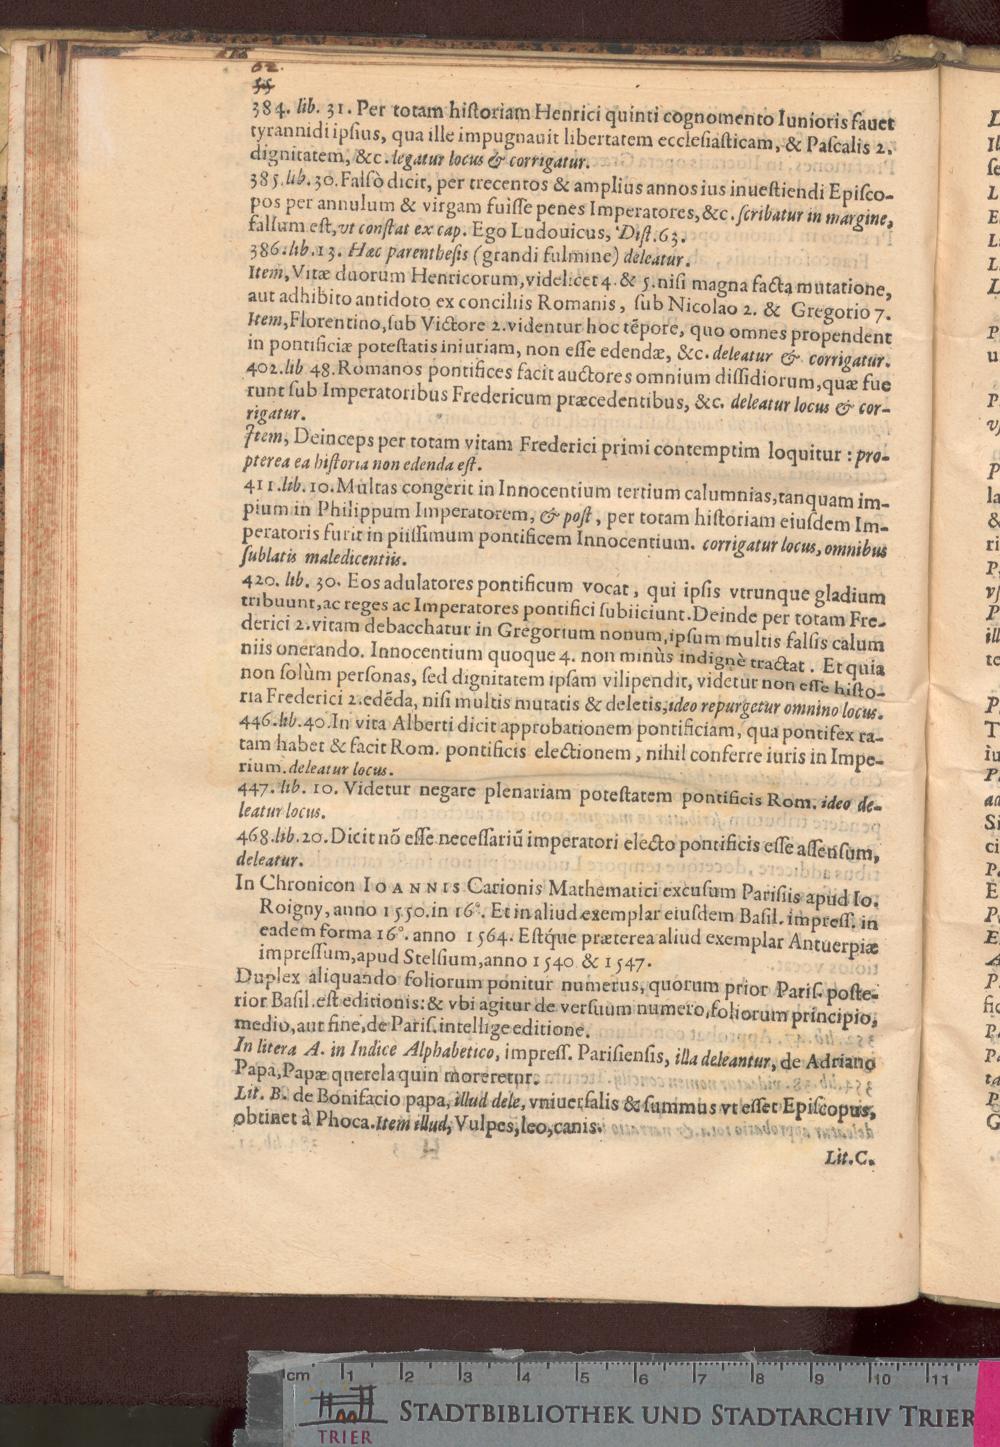 62.
55
384. lib. 31. Per totam historiam Henrici quinti cognomento Iunioris fauet
tyrannidi ipsius, qua ille impugnauit libertatem ecclesiasticam, & Pascalis 2.
dignitatem, &c. legatur locus & corrigatur.
385. lib. 30. Falsò dicit, per trecentos & amplius annos ius inuestiendi Episco-
pos per annulum & virgam fuisse penes Imperatores, &c. scribatur in margine,
falsum est, vt constat ex cap. Ego Ludouicus, Dist. 63.
386. lib. 13. Hæc parenthesis (grandi fulmine) deleatur.
Item, Vitæ duorum Henricorum, videlicet 4. & 5. nisi magna facta mutatione,
aut adhibito antidoto ex conciliis Romanis, sub Nicolao 2. & Gregorio 7.
Item, Florentino, sub Victore 2. videntur hoc tẽpore, quo omnes propendent
in pontificiæ potestatis iniuriam, non esse edendæ, &c. deleatur & corrigatur.
402. lib 48. Romanos pontifices facit auctores omnium dissidiorum, quæ fue
runt sub Imperatoribus Fredericum præcedentibus, &c. deleatur locus & cor-
rigatur.
Item, Deinceps per totam vitam Frederici primi contemptim loquitur: pro-
pterea ea historia non edenda est.
411. lib. 10. Multas congerit in Innocentium tertium calumnias, tanquam im-
pium in Philippum Imperatorem, & post, per totam historiam eiusdem Im-
peratoris furit in piissimum pontificem Innocentium. corrigatur locus, omnibus
sublatis maledicentiis.
420. lib. 30. Eos adulatores pontificum vocat, qui ipsis vtrunque gladium
tribuunt, ac reges ac Imperatores pontifici subiiciunt. Deinde per totam Fre-
derici 2. vitam debacchatur in Gregorium nonum, ipsum multis falsis calum
niis onerando. Innocentium quoque 4. non minùs indignè tractat. Et quia
non solùm personas, sed dignitatem ipsam vilipendit, videtur non esse histo-
ria Frederici 2. edẽda, nisi multis mutatis & deletis, ideo repurgetur omnino locus.
446. lib. 40. In vita Alberti dicit approbationem pontificiam, qua pontifex ra-
tam habet & facit Rom. pontificis electionem, nihil conferre iuris in Impe-
rium. deleatur locus.
447. lib. 10. Videtur negare plenariam potestatem pontificis Rom. ideo de-
leatur locus.
468. lib. 20. Dicit nõ esse necessariũ imperatori electo pontificis esse assensum,
deleatur.
In Chronicon IOANNIS Carionis Mathematici excusum Parisiis apud Io.
Roigny, anno 1550. in 16°. Et in aliud exemplar eiusdem Basil. impress. in
eadem forma 16°. anno 1564. Estq́ue præterea aliud exemplar Antuerpiæ
impressum, apud Stelsium, anno 1540 & 1547.
Duplex aliquando foliorum ponitur numerus, quorum prior Paris. poste-
rior Basil. est editionis: & vbi agitur de versuum numero, foliorum principio,
medio, aut fine, de Paris. intellige editione.
In litera A. in Indice Alphabetico, impress. Parisiensis, illa deleantur, de Adriano
Papa, Papæ querela quin moreretur.
Lit. B. de Bonifacio papa, illud dele, vniuersalis & summus vt esset Episcopus,
obtinet à Phoca. Item illud, Vulpes, leo, canis.
Lit. C.
cm 1 2 3 4 5 6 7 8 9 10 11
STADTBIBLIOTHEK UND STADTARCHIV TRIER
TRIER